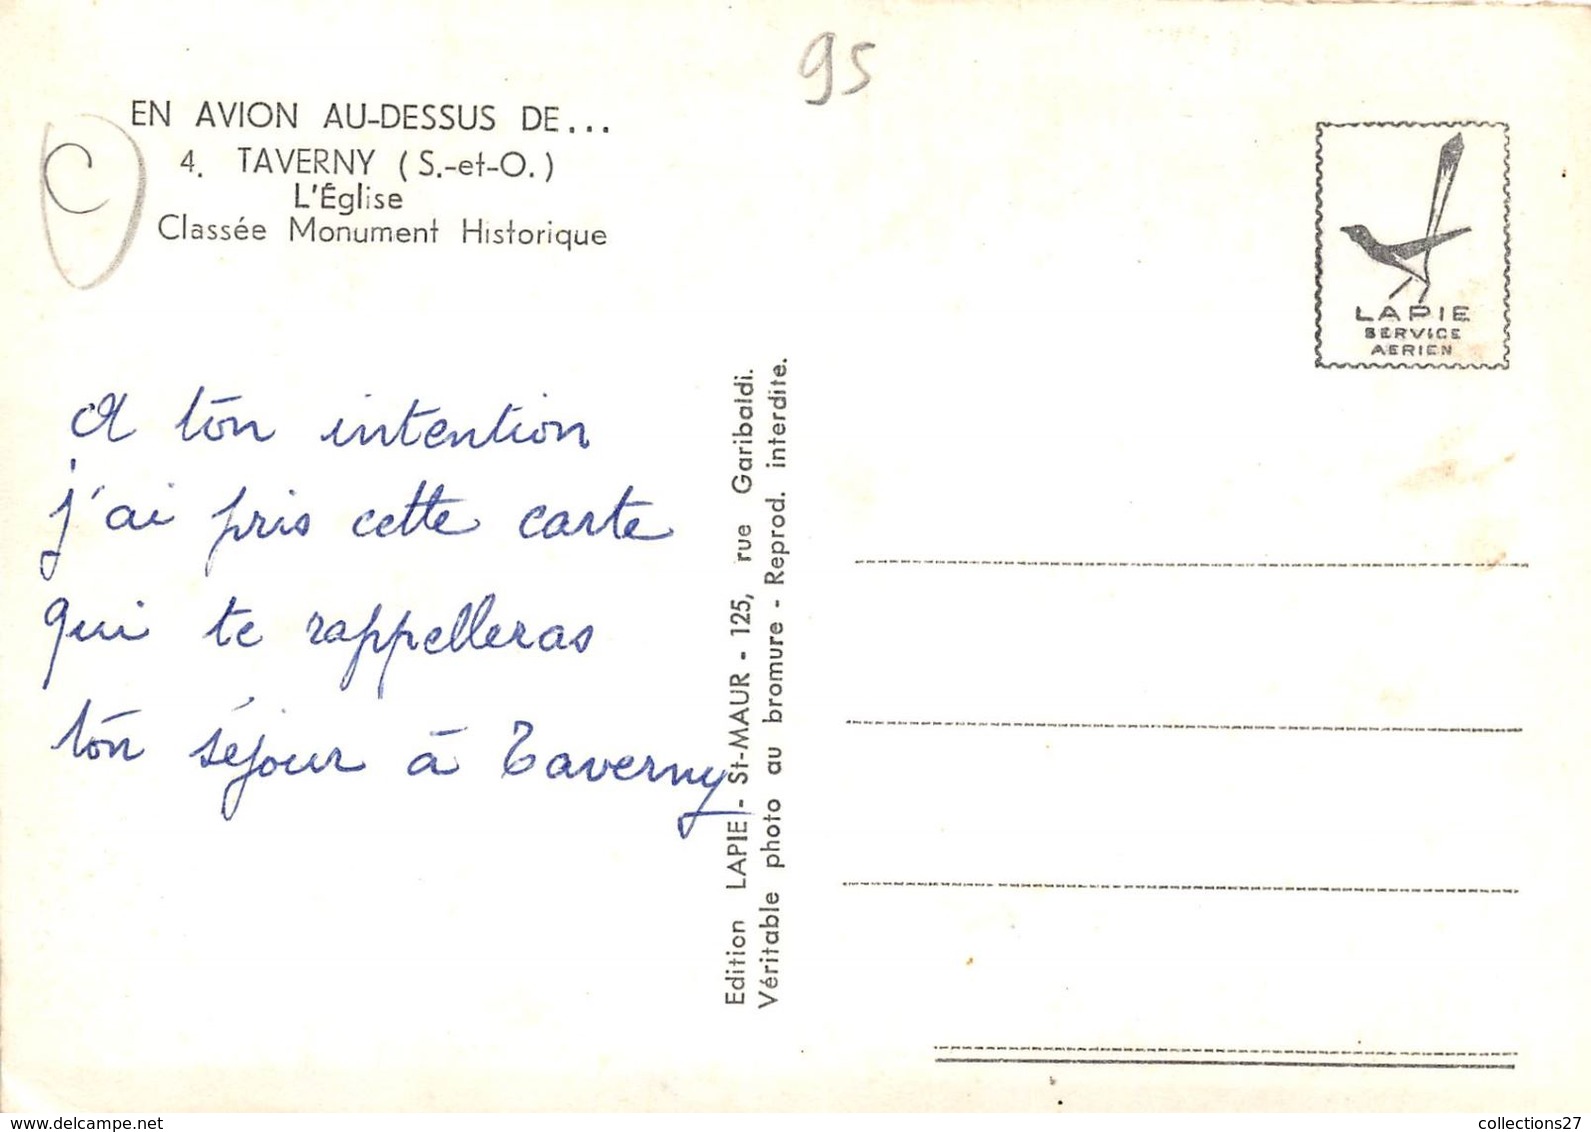 95
EN AVION AU-DESSUS DE...
4. TAVERNY (S.-et-O.)
L'Église
Classée Monument Historique
C
LAPIE
SERVICE
AERIEN
A ton intention
j'ai pris cette carte
qui te rappelleras
ton séjour à Taverny
Edition LAPIE - St-MAUR - 125, rue Garibaldi.
Véritable photo au bromure - Reprod. interdite.
www.delcampe.net
collections27